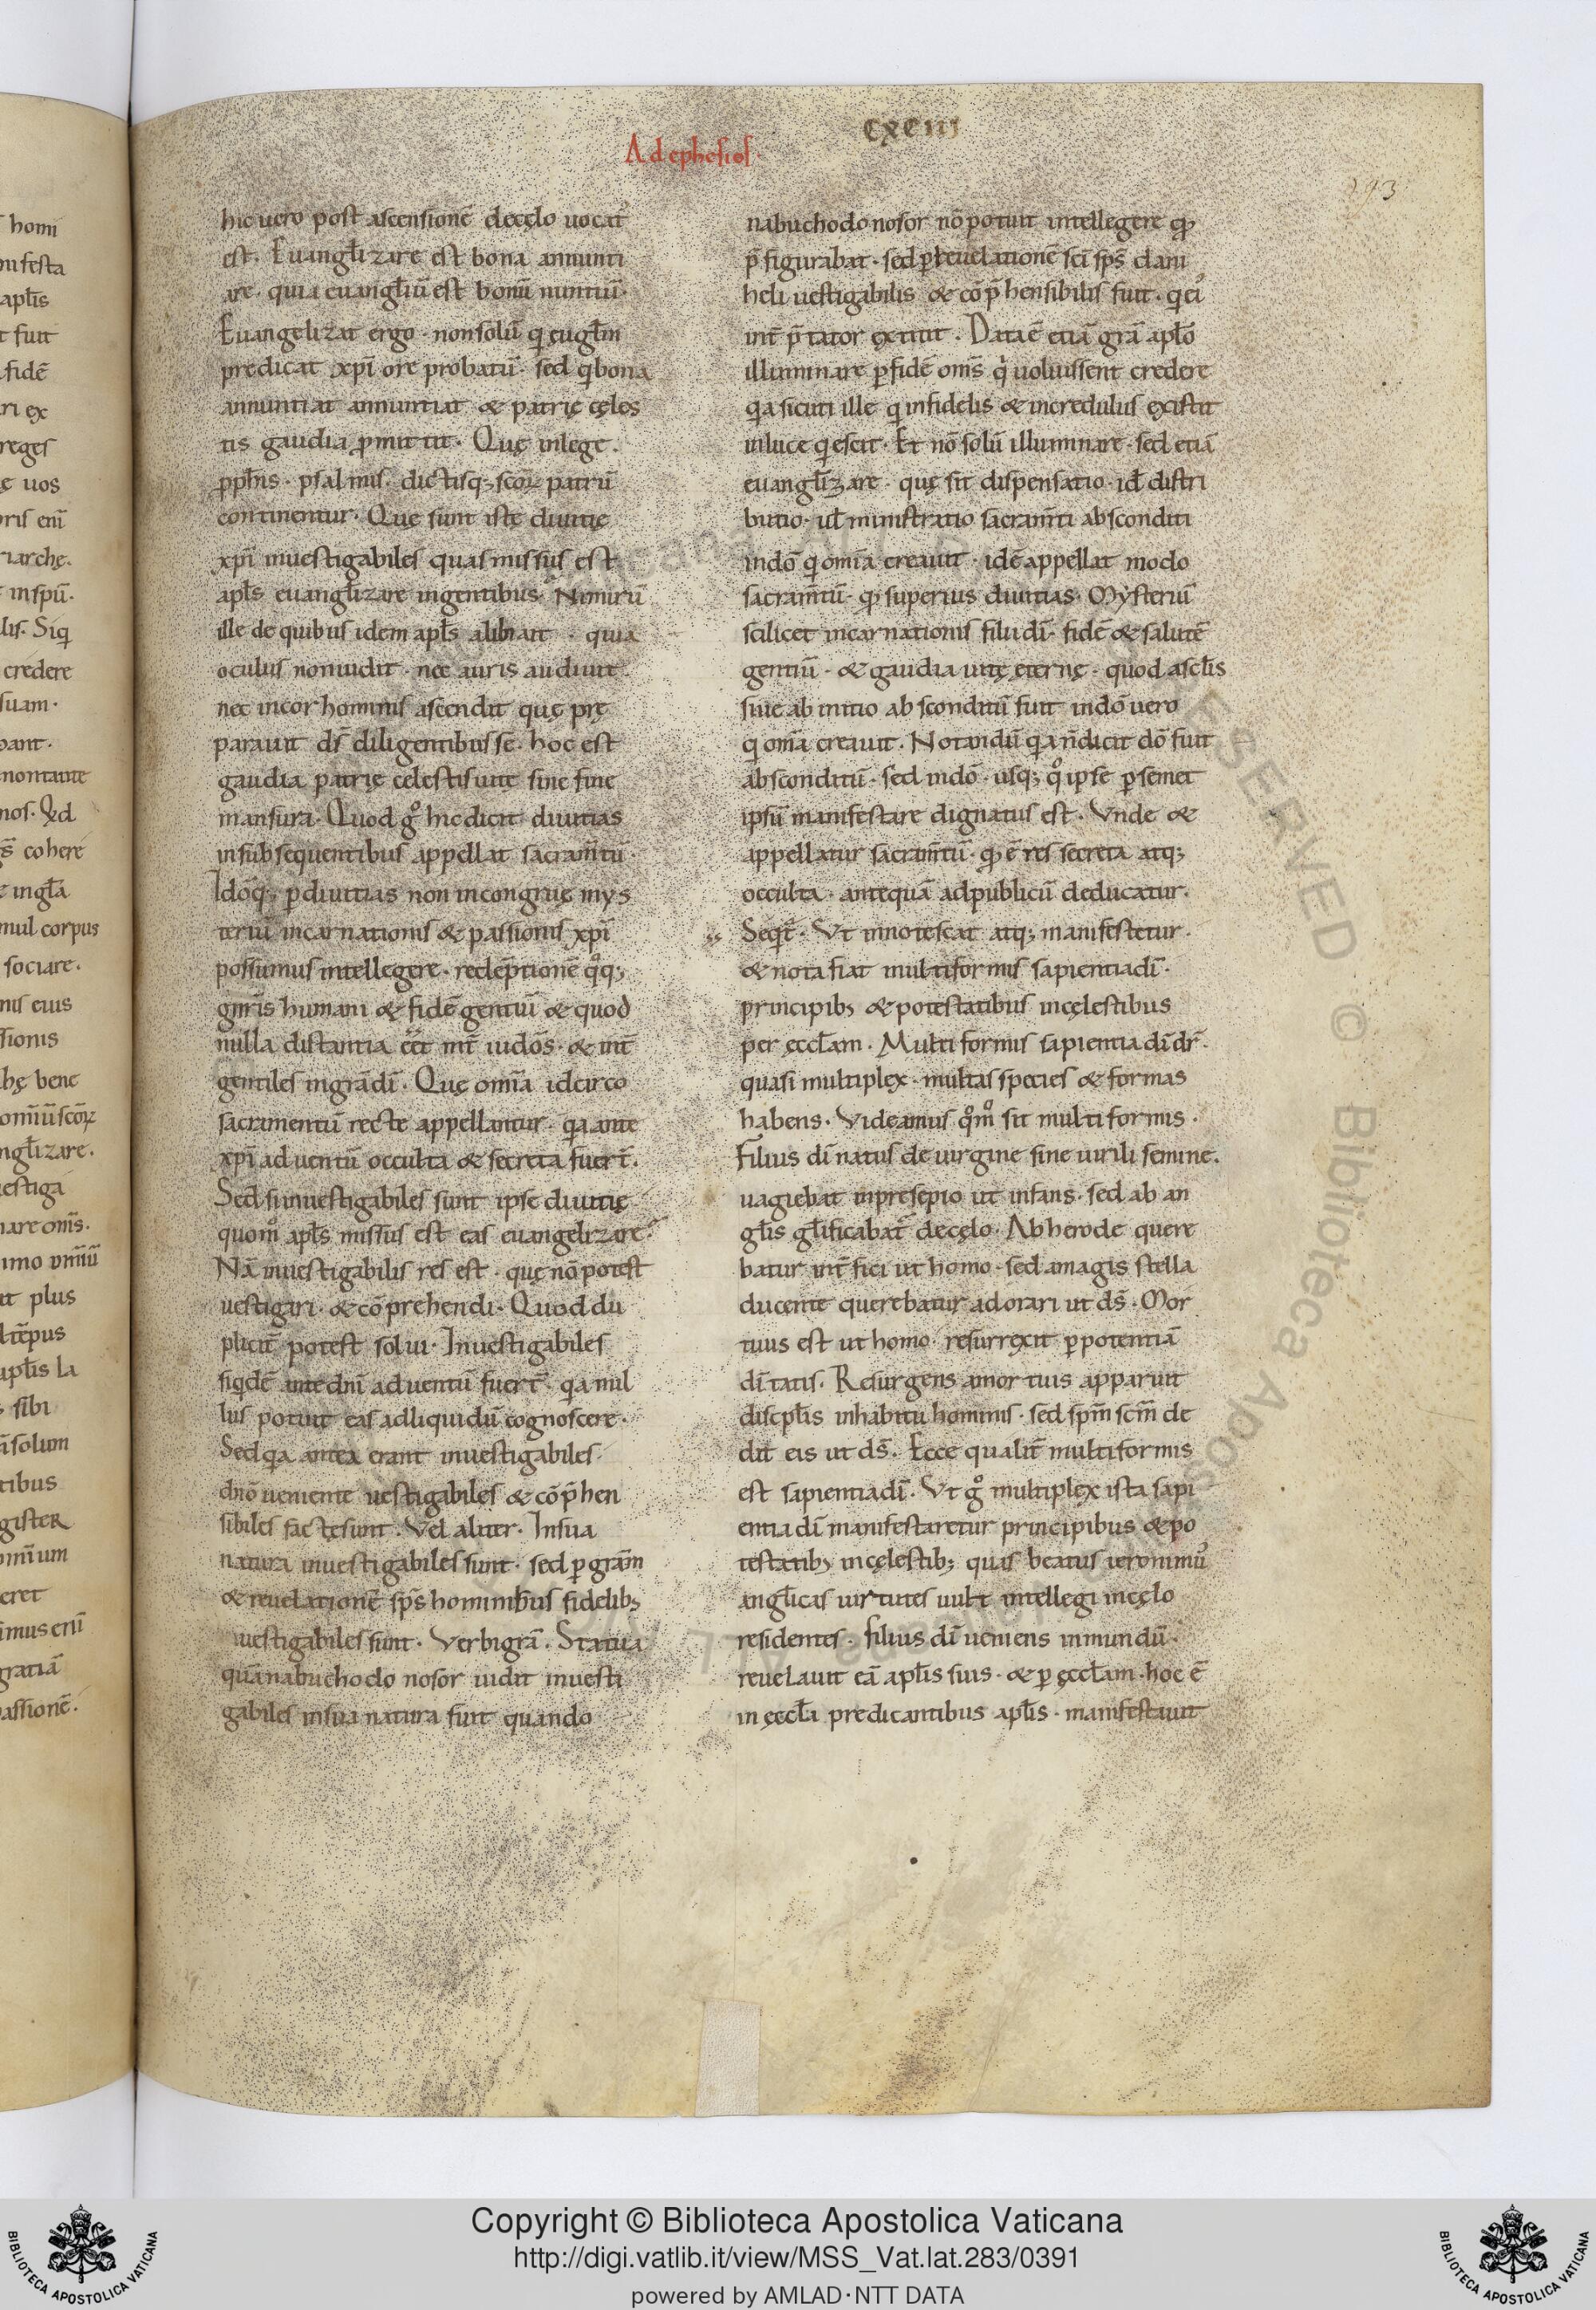 Ad ephesios.
cxciii
193
hic uero post ascensionē decęlo uocat᷒
est. Euangl̄izare est bona annunti
are. quia euangl̄iū est bonū nuntiū.
Euangelizat ergo. nonsolū q̄ eugl̄m
predicat xp̄i ore probatū. sed q̄ bona
annuntiat annuntiat & patrię cęles
tis gaudia p̄mittit. Quę inlege.
p̄ph̄is. psalmis. dictisq; sc̄oꝝ patrū
continentur. Quę sunt istę diuitię
xp̄i inuestigabiles quas missus est
apl̄s euangl̄izare ingentibus. Nimirū
ille de quibus idem apl̄s alibi ait. quia
oculus nonuidit. nec auris audiuit.
nec incor hominis ascendit quę prę
parauit ds̄ diligentibus se. hoc est
gaudia patrię cęlestis uitę sine fine
mansura. Quod gͦ hic dicit diuitias
insubsequentibus appellat sacram̄tū.
Idōq; ꝑ diuitias non incongruę mys
teriū incarnationis & passionis xp̄i
possumus intellegere. redēptionē qͦq;
gnr̄is humani & fidē gentiū & quod
nulla distantia eēt int̄ iudōs. & int̄
gentiles ingr̄a dī. Quę om̄ia idcirco
sacramentū recte appellantur. q̄a ante
xp̄i aduentū occulta & secreta fuer̄t.
Sed si inuestigabiles sunt ipse diuitię
quomͦ apl̄s missus est eas euangelizare?
Nā inuestigabilis res est. quę nō potest
uestigari. & cōprehendi. Quod du
plicit̄ potest solui. Inuestigabiles
siqdē ante dn̄i aduentū fuer̄t. q̄a nul
lus potuit eas adliquidū cognoscere.
Sed q̄a antea erant inuestigabiles
dn̄o ueniente uestigabiles & cōp̄hen
sibiles factę sunt. Vel aliter. Insua
natura inuestigabiles sunt. sed ꝑ grām
& reuelationē sp̄s hominibus fidelib;
uestigabiles sunt. Verbi grā. Statua
quā nabuchodonosor uidit inuesti
gabiles insua natura fuit quando
nabuchodonosor nō potuit intellegere qͩ
p̄figurabat. sed ꝑ reuelationē sc̄i sp̄s dani
heli uestigabilis & cōp̄hensibilis fuit. q̄ ei᷒
int̄p̄tator extitit. Data ē etiā grā apl̄o
illuminare ꝑ fidē om̄s q̄ uoluissent credere
q̄a sicuti ille q̄ infidelis & incredulus existit
inluce q̄escit. Et nō solū illuminare. sed etiā
euangl̄izare. quę sit dispensatio. id̄ distri
butio. ul̄ ministratio sacram̄ti absconditi
indō q̄ om̄ia creauit. idē appellat modo
sacram̄tū. qͩ superius diuitias. Mysteriū
scilicet incarnationis filii dī. fidē & salutē
gentiū. & gaudia uitę ęternę. quod a scl̄is
siue ab initio absconditū fuit indō uero
q̄ om̄ia creauit. Notandū q̄a n̄ dicit dō fuit
absconditū. sed indō. usq; qͦ ipse ꝑ semet
ipsū manifestare dignatus est. Vnde &
appellatur sacram̄tū. qͩ ē res secreta atq;
occulta. antequā adpublicū deducatur.
Seqt̄. Vt innotescat atq; manifestetur.
& nota fiat multiformis sapientia dī.
principib; & potestatibus incęlestibus
per ęccl̄am. Multiformis sapientia dī dr̄.
quasi multiplex. multas species & formas
habens. Videamus qͦmͦ sit multiformis.
Filius dī natus de uirgine sine uirili semine.
uagiebat inpresepio ut infans. sed ab an
gl̄is gl̄ificabat̄ decęlo. Ab herode quere
batur int̄fici ut homo. sed amagis stella
ducente querebatur adorari ut ds̄. Mor
tuus est ut homo. resurręxit ꝑ potentiā
dī tatis. Resurgens amortuis apparuit
discpl̄is inhabitu hominis. sed sp̄m sc̄m de
dit eis ut ds̄. Ecce qualit̄ multiformis
est sapientia dī. Vt gͦ multiplex ista sapi
entia dī manifestaretur principibus & po
testatib; incęlestib; quas beatus ieronimu᷒
angl̄icas uirtutes uult intellegi incęlo
residentes. filius dī ueniens inmundū.
reuelauit eā apl̄is suis. & ꝑ ęccl̄am. hoc ē
in ęccl̄a predicantibus apl̄is. manifestauit
Copyright © Biblioteca Apostolica Vaticana
http://digi.vatlib.it/view/MSS_Vat.lat.283/0391
powered by AMLAD·NTT DATA